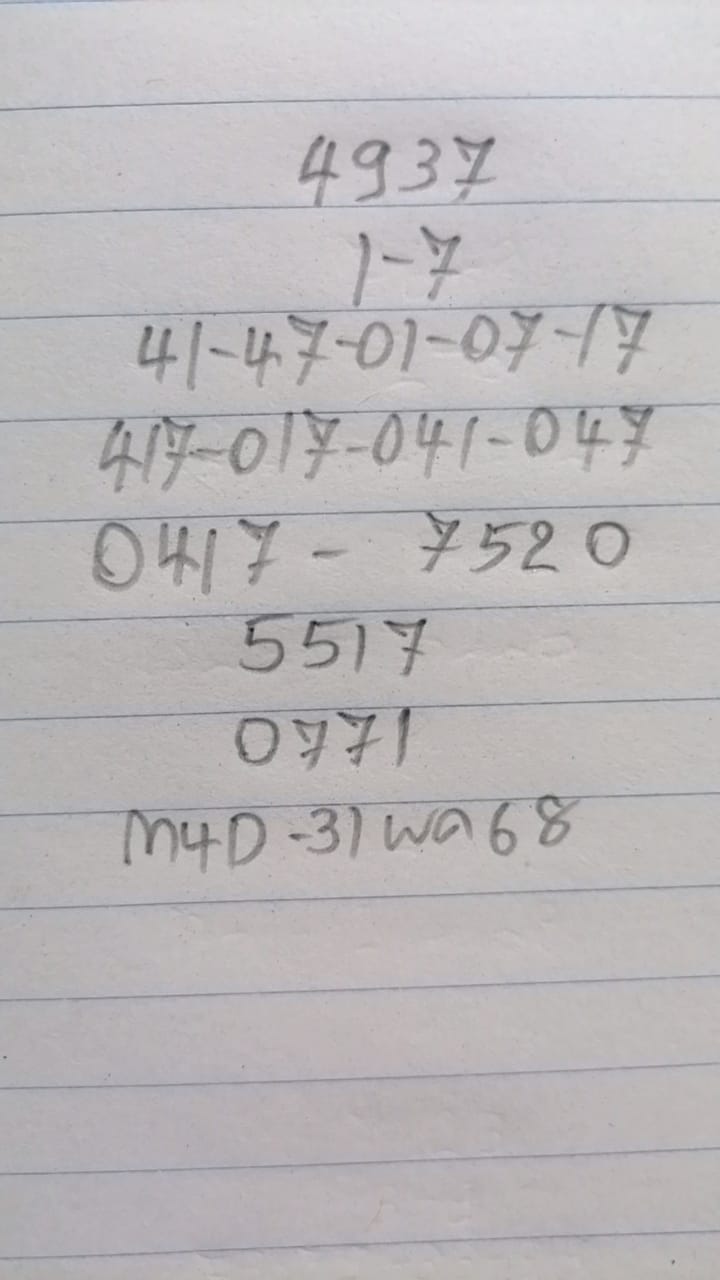 4937
1-7
41-47-01-07-17
417-017-041-047
0417 - 7520
5517
0771
M4D-31wa68